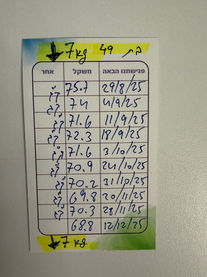 בת 49 7kg ↓
פגישתנו הבאה משקל אחר
29/8/25 75.7 ק"ג
4/9/25 74 ק"ג
11/9/25 71.6 ק"ג
18/9/25 72.3 ק"ג
3/10/25 71.6 ק"ג
24/10/25 70.9 ק"ג
31/10/25 70.2 ק"ג
20/11/25 69.8 ק"ג
28/11/25 70.3 ק"ג
12/12/25 68.8
↓ 7kg